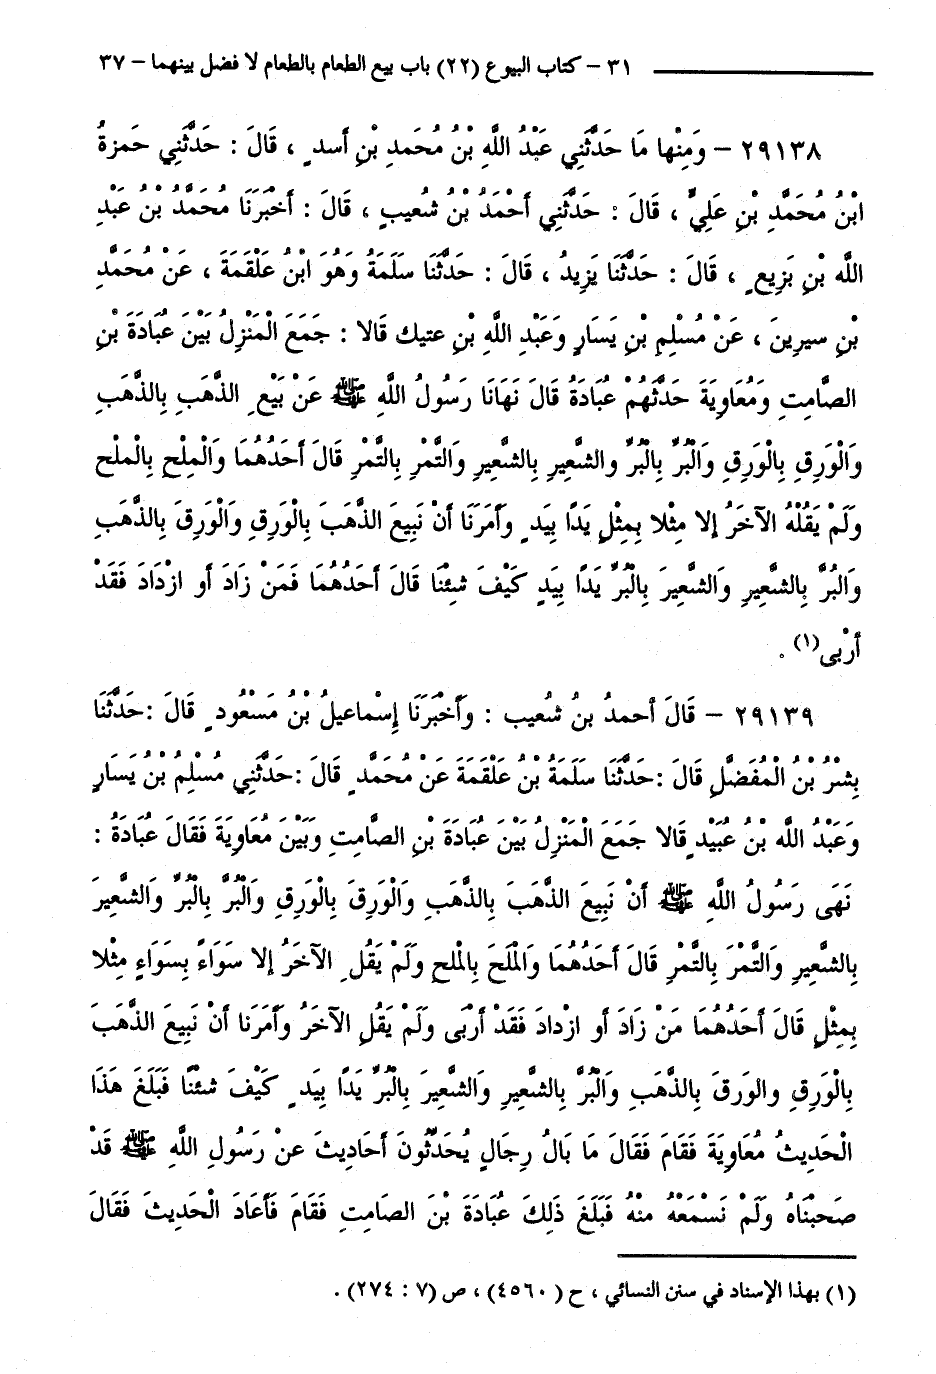 ٣١ – كتاب البيوع (٢٢) باب بيع الطعام بالطعام لا فضل بينهما – ٣٧
٢٩١٣٨ – وَمِنْها مَا حَدَّثَنِي عَبْدُ اللَّهِ بْنُ مُحَمَدِ بْنِ أسدٍ ، قَالَ : حَدَّثَنِي حَمزةُ
ابْنُ مُحَمَّدِ بْنِ عَلِيٍّ ، قَالَ : حَدَّثَنِي أَحْمَدُ بْنُ شُعيبٍ ، قَالَ : أَخْبَرَنَا مُحَمَّدُ بْنُ عَبْدِ
اللَّه بْنِ بَزِيعٍ ، قَالَ : حَدَّثَنَا يَزِيدُ ، قَالَ : حَدَّثَنَا سَلَمَةُ وَهُوَ ابْنُ عَلْقَمَةَ ، عَنْ مُحَمَّدِ
بْنِ سيرِينَ ، عَنْ مُسْلِمِ بْنِ يَسَارٍ وَعَبْدِ اللَّهِ بْنِ عتيك قَالا : جَمَعَ الْمَنْزِلُ بَيْنَ عُبَادَةَ بْنِ
الصَّامِتِ وَمُعَاوِيَةَ حَدَّثَهُمْ عُبَادَةُ قَالَ نَهَانَا رَسُولُ اللَّهِ ﷺ عَنْ بَيْعِ الذَّهَبِ بِالذَّهَبِ
وَالْوَرِقِ بِالْوَرِقِ وَالْبُرِّ بِالْبُرِّ والشَّعِيرِ بِالشَّعِيرِ وَالتَّمْرِ بِالتَّمْرِ قَالَ أَحَدُهُمَا وَالْمِلْحِ بِالْمِلْحِ
وَلَمْ يَقُلْهُ الآخَرُ إلا مِثْلا بِمِثْلٍ يَدًا بِيَدٍ وأَمَرَنَا أنْ نَبِيعَ الذَّهَبَ بِالْوَرِقِ وَالْوَرِقَ بِالذَّهَبِ
وَالبُرَّ بِالشَّعِيرِ وَالشَّعِيرَ بِالْبُرِّ يَدًا بِيَدٍ كَيْفَ شِئْنَا قَالَ أَحَدُهُمَا فَمَنْ زَادَ أو ازْدَادَ فَقَدْ
أَرْبى(١) .
٢٩١٣٩ – قَالَ أحمدُ بنُ شُعيب : وَأَخْبَرَنَا إِسْماعيلُ بْنُ مَسْعُودٍ قَالَ :حَدَّثَنَا
بِشْرُ بْنُ الْمُفَضَّلِ قَالَ :حَدَّثَنَا سَلَمَةُ بْنُ عَلْقَمَةَ عَنْ مُحَمَّدٍ قَالَ :حَدَّثَنِي مُسْلِمُ بْنُ يَسَارٍ
وَعَبْدُ اللَّه بْنُ عُبَيْدٍ قَالا جَمَعَ الْمَنْزِلُ بَيْنَ عُبَادَةَ بْنِ الصَّامِتِ وَبَيْنَ مُعَاوِيَةَ فَقَالَ عُبَادَةُ :
نَهَى رَسُولُ اللَّهِ ﷺ أَنْ نَبِيعَ الذَّهَبَ بِالذَّهَبِ وَالْوَرِقَ بِالْوَرِقِ وَالْبُرَّ بِالْبُرِّ وَالشَّعِيرَ
بِالشَّعِيرِ وَالتَّمْرَ بِالتَّمْرِ قَالَ أَحَدُهُمَا وَالْمِلْحَ بِالْملحِ وَلَمْ يَقُلِ الآخَرُ إلا سَوَاءً بِسَوَاءٍ مِثْلا
بِمِثْلٍ قَالَ أَحَدُهُمَا مَنْ زَادَ أو ازْدادَ فَقَدْ أَرْبَى وَلَمْ يَقُلِ الآخَرُ وأَمَرَنا أنْ نَبِيعَ الذَّهَبَ
بِالْوَرِقِ والوَرقَ بِالذَّهَبِ وَالْبُرَّ بِالشَّعِيرِ وَالشَّعِيرَ بِالْبُرِّ يَدًا بِيَدٍ كَيْفَ شئْنَا فَبَلَغَ هَذَا
الْحَدِيثُ مُعَاوِيَةَ فَقَامَ فَقَالَ مَا بَالُ رِجَالٍ يُحَدِّثُونَ أَحَادِيثَ عنْ رَسُولِ اللَّهِ ﷺ قَدْ
صَحِبْنَاهُ وَلَمْ نَسْمَعْهُ منْهُ فَبَلَغَ ذَلِكَ عُبَادَةَ بْنَ الصَّامِتِ فَقَامَ فَأَعَادَ الْحَدِيثَ فَقَالَ
(١) بهذا الإسناد في سنن النسائي ، ح (٤٥٦٠) ، ص (٧ : ٢٧٤) .